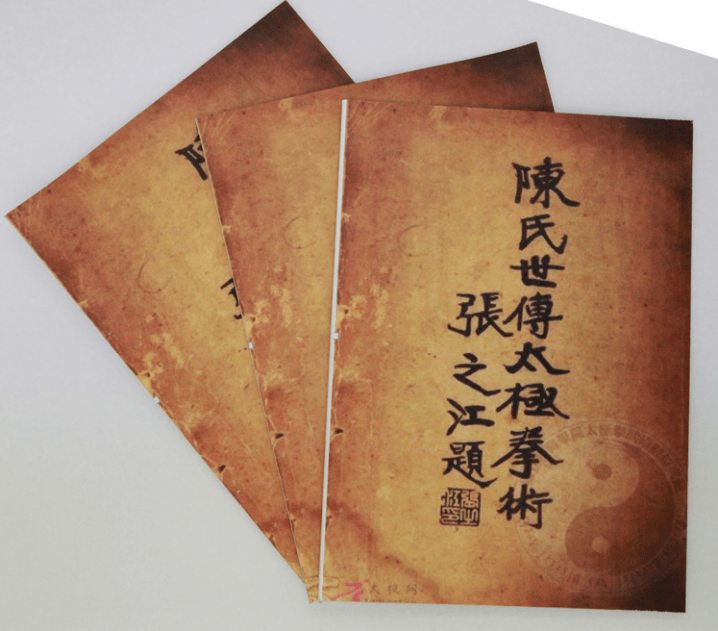 陳氏世傳太極拳術
張之江題
太极网